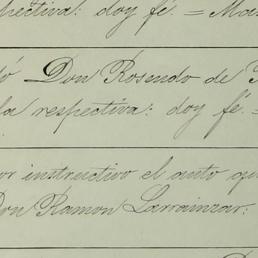 respectiva: doy fé = Ma
ó Don Rosendo de
la respectiva: doy fé. =
or instructivo el auto qu
Don Ramon Larrainzar: